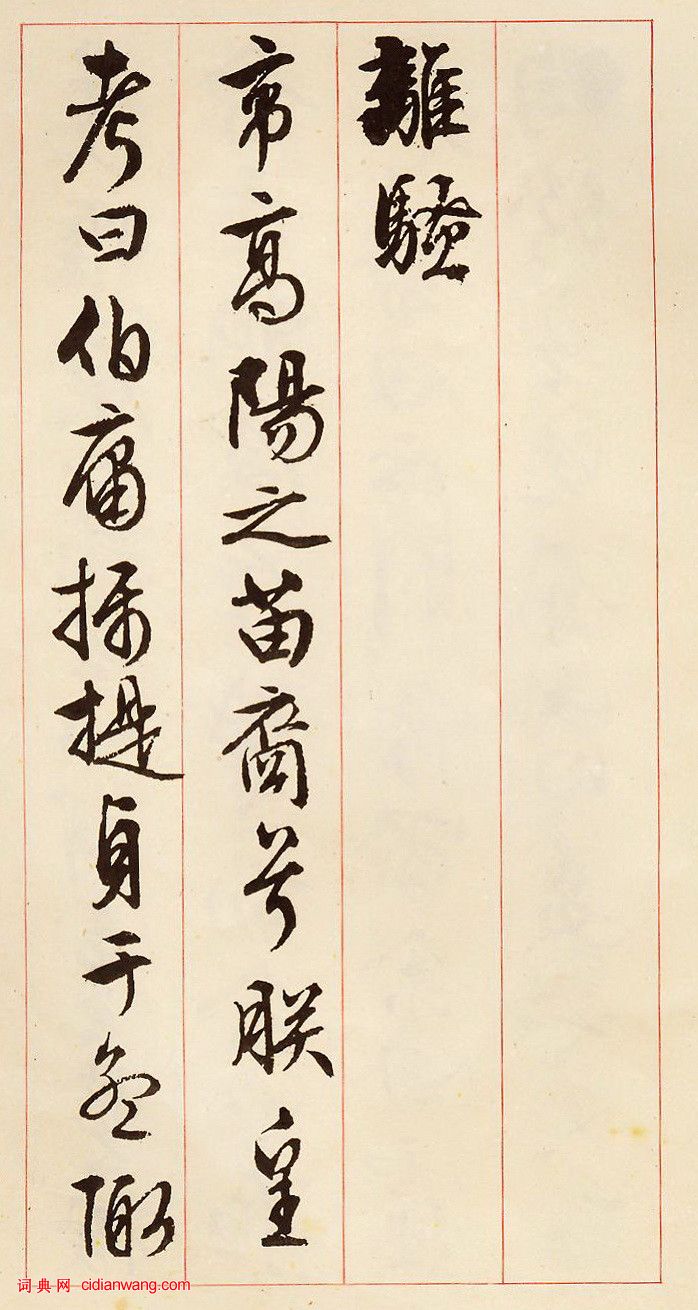 離騷
帝高陽之苗裔兮朕皇
考曰伯庸攝提貞于孟陬
词典网 cidianwang.com